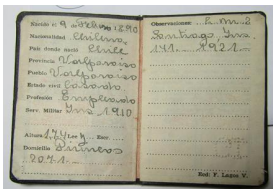 Nacido el 9 Febrero 1890
Nacionalidad Chilena
País donde nació Chile
Provincia Valparaiso
Pueblo Valparaiso
Estado civil Casado
Profesión Empleado
Serv. Militar Ins. 1910
Altura 1,74
Domicilio
2071
Observaciones:
Santiago, Ins.
141 1921
Edt: F. Lagos V.